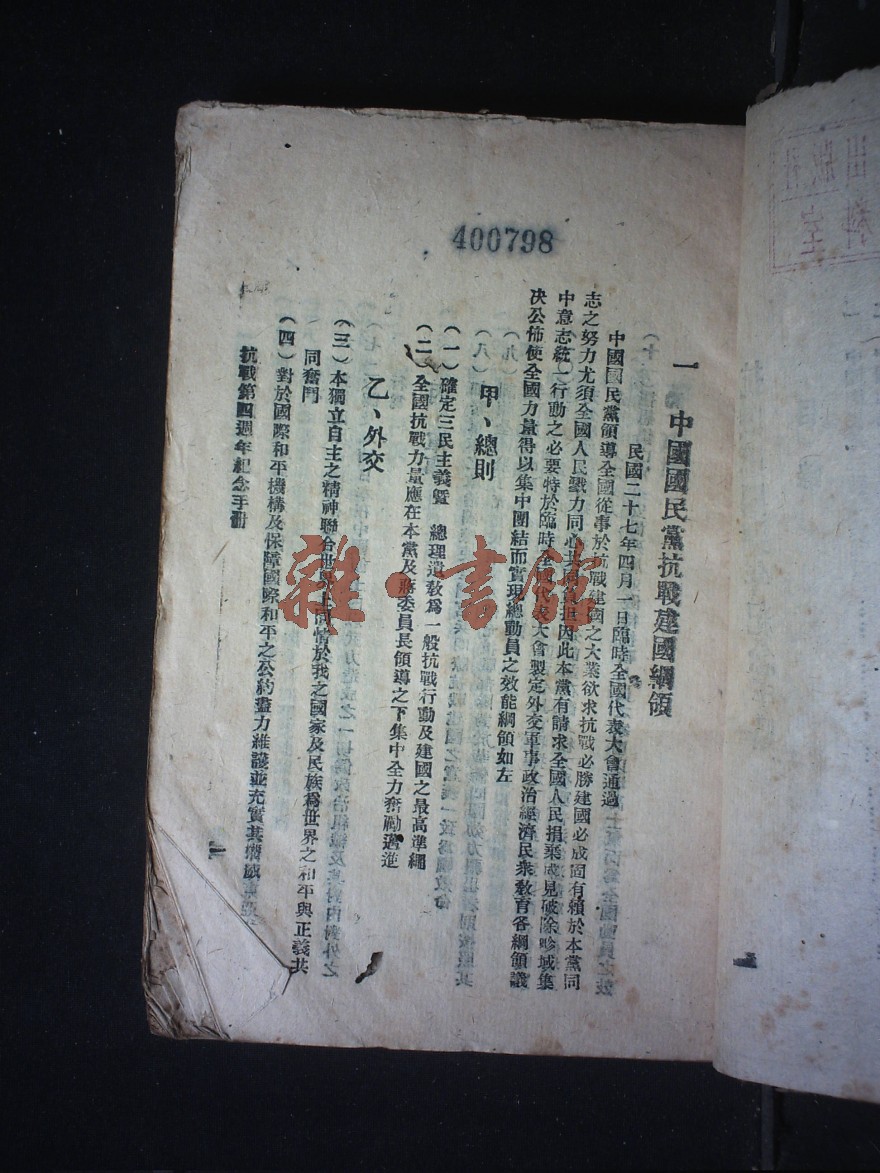 400798
一 中國國民黨抗戰建國綱領
民國二十七年四月一日臨時全國代表大會通過
中國國民黨領導全國從事於抗戰建國之大業欲求抗戰必勝建國必成固有賴於本黨同
志之努力尤須全國人民戮力同心共同負担因此本黨有請求全國人民捐棄成見破除畛域集
中意志統一行動之必要特於臨時全國代表大會製定外交軍事政治經濟民衆教育各綱領議
决公佈使全國力量得以集中團結而實現總動員之效能綱領如左
甲、總則
（一）確定三民主義暨　總理遺教爲一般抗戰行動及建國之最高準繩
（二）全國抗戰力量應在本黨及蔣委員長領導之下集中全力奮勵邁進
乙、外交
（三）本獨立自主之精神聯合世界上同情於我之國家及民族爲世界之和平與正義共
同奮鬥
（四）對於國際和平機構及保障國際和平之公約盡力維護並充實其權威
抗戰第四週年紀念手冊
雜·書館
出版社
室